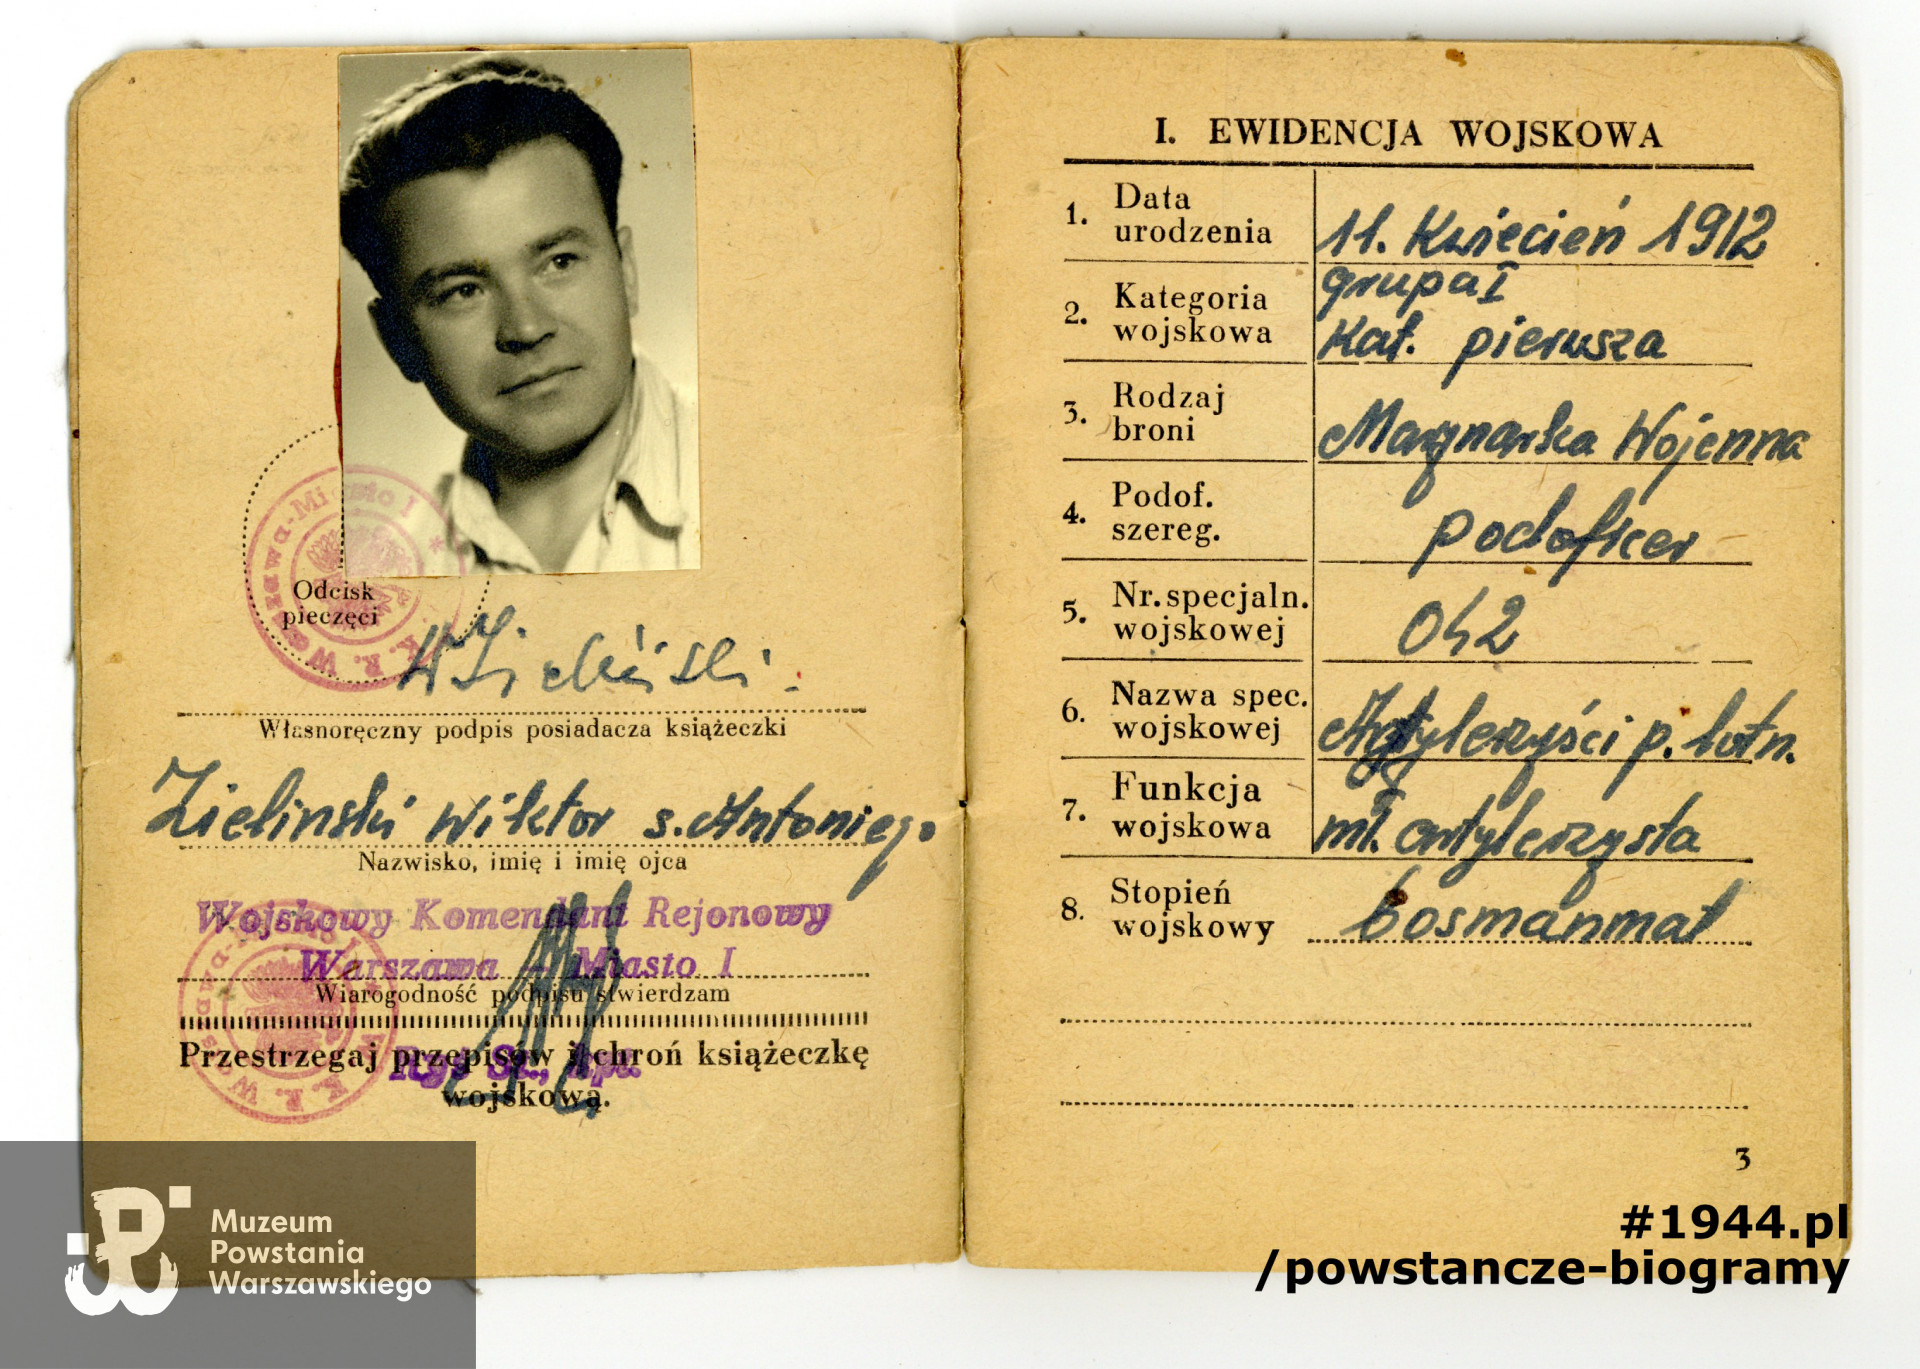 Odcisk
pieczęci
W Zieliński
Własnoręczny podpis posiadacza książeczki
Zieliński Wiktor s. Antoniego
Nazwisko, imię i imię ojca
Wojskowy Komendant Rejonowy
Warszawa - Miasto I
Wiarogodność podpisu stwierdzam
Przestrzegaj przepisów i chroń książeczkę
wojskową.
I. EWIDENCJA WOJSKOWA
1. Data urodzenia 11. Kwiecień 1912
2. Kategoria wojskowa grupa I
Kat. pierwsza
3. Rodzaj broni Marynarska Wojenna
4. Podof. szereg. podoficer
5. Nr. specjaln. wojskowej 042
6. Nazwa spec. wojskowej Artylerzyści p. lotn.
7. Funkcja wojskowa mł. artylerzysta
8. Stopień wojskowy bosmanmat
3
Muzeum
Powstania
Warszawskiego
#1944.pl
/powstancze-biogramy